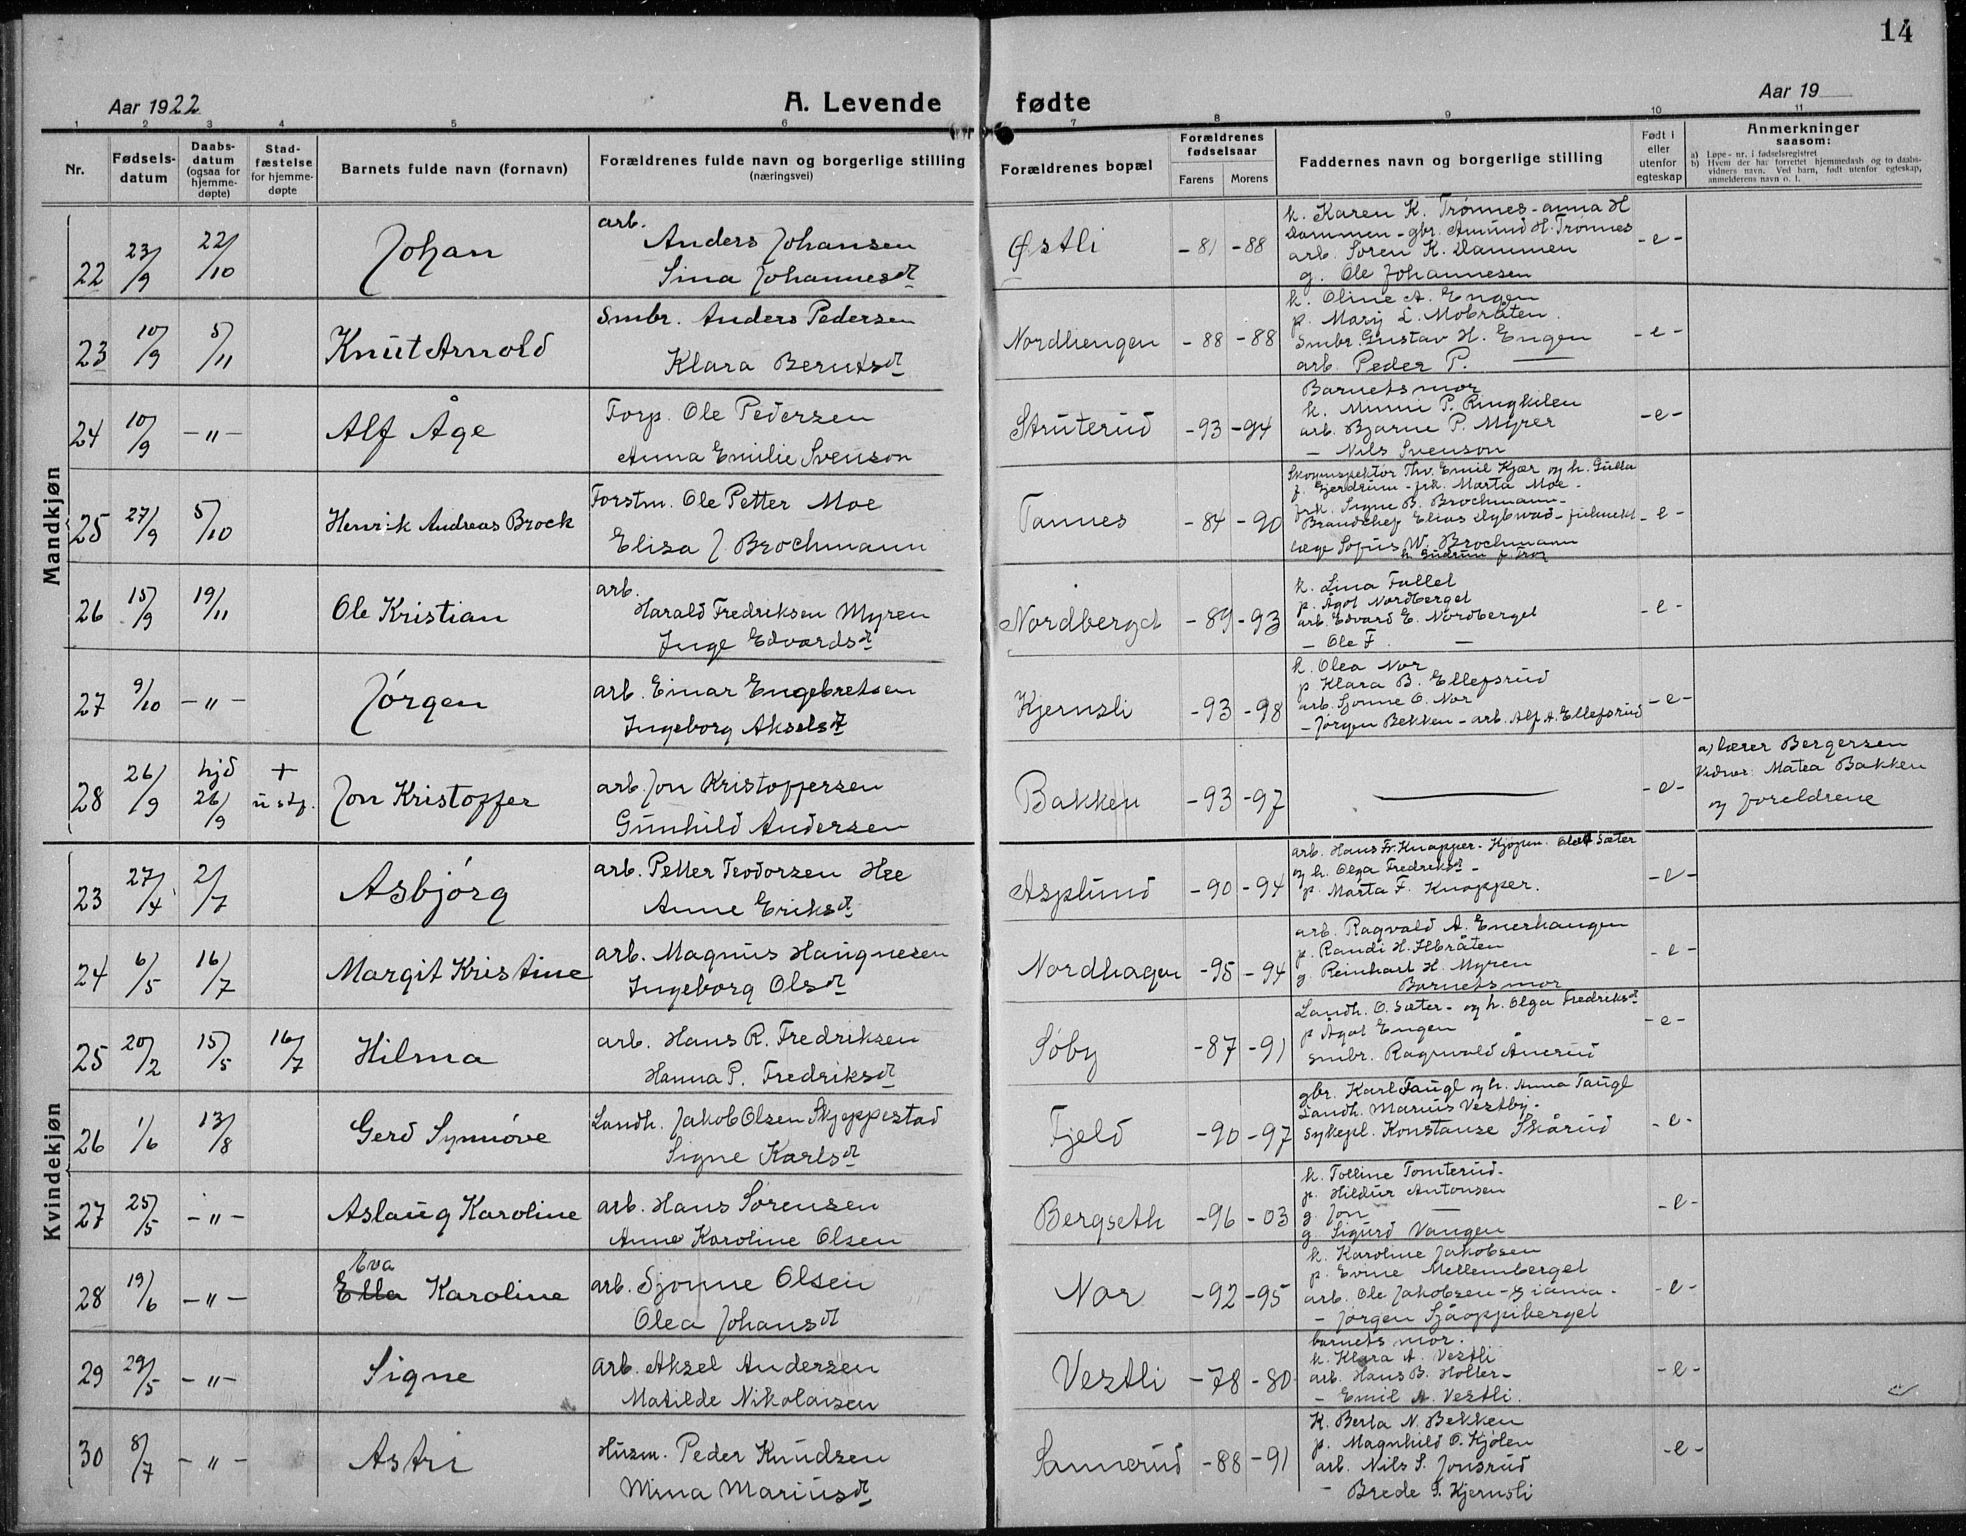 14
Aar 1922
A. Levende
fødte
Aar 19
1 2 3 4 5 6 7 8 9 10 11
Nr.
Fødsels-
datum
Daabs-
datum
(ogsaa for
hjemme-
døpte)
Stad-
fæstelse
for hjemme-
døpte
Barnets fulde navn (fornavn)
Forældrenes fulde navn og borgerlige stilling
(næringsvei)
Forældrenes bopæl
Forældrenes
fødselsaar
Farens
Morens
Faddernes navn og borgerlige stilling
Født i
eller
utenfor
egteskap
Anmerkninger
saasom:
a) Løpe-nr. i fødselsregistret
b) Hvem der har forrettet hjemmedaab og to daabs-
vidners navn. Ved barn, født utenfor egteskap,
anmelderens navn o. l.
Mandkjøn
22 23/9 22/10 Johan
arb.
Anders Johansen
Sina Johannesdt
Østli -81 -88
k. Karen K. Trønnes - Anna H
Dammen - gbr. Amund H. Trønnes
arb. Søren K. Dammen
g. Ole Johannesen
-e-
23 10/9 5/11 Knut Arnold
Smbr. Anders Pedersen
Klara Berntsdt
Nordhengen -88 -88
k. Oline A. Engen
p. Marij L. Mobråten.
Smbr. Gustav H. Engen
arb. Peder P. —
-e-
24 10/9 -"- Alf Åge
Forp. Ole Pedersen
Anna Emilie Svenson
Struterud -93 -94
Barnets mor
k. Minni P. Ringkilen
arb. Bjarne P. Myrer
- Nils Svenson
-e-
25 27/9 5/10 Henrik Andreas Brock
Forstm. Ole Petter Moe
Elisa J. Brochmann
Tannes -84 -90
Skoginspektør Thv. Emil Kjær og h. Gulla
f. Gjerdrum - frk. Marta Moe -
frk. Signe B. Brochmann -
Brandchef Elias Dybwad -
læge Sofus W. Brochmann
h. Gudrun f.
-e-
26 15/9 19/11 Ole Kristian
arb.
Harald Fredriksen Myren
Inge Edvardsdt
Nordberget -89 -93
k. Lina Fallet
p. Ågot Nordberget
arb. Edvard E. Nordberget
- Ole F. —
-e-
27 9/10 -"- Jørgen
arb. Einar Engebretsen
Ingeborg Akselsdt
Kjernsli -93 -98
k. Olea Nor
p. Klara B. Ellefsrud
arb. Sjonne O. Nor
- Jørgen Bekken - arb. Alf A. Ellefsrud
-e-
28 26/9 hjd 26/9 + u stf. Jon Kristoffer
arb. Jon Kristoffersen
Gunhild Andersen
Bakken -93 -97 —
-e-
a) Lærer Bergersen
Vidner: Matea Bakken
og foreldrene
Kvindekjøn
23 27/4 2/7 Asbjørg
arb. Petter Teodorsen Hee
Anne Eriksdt
Asplund -90 -94
arb. Hans Fr. Knapper - Kjøpm. Olaf Sæter
og h. Olga Fredriksdt -
p. Marta F. Knapper.
-e-
24 6/5 16/7 Margit Kristine
arb. Magnus Haugnesen
Ingeborg Olsdt
Nordhagen -95 -94
arb. Ragvald A. Enerhaugen
p. Randi H. Ilbråten
g Reinhart H. Myren
Barnets mor
-e-
25 20/2 15/5 16/7 Hilma
arb. Hans R. Fredriksen
Hanna P. Fredriksdt
Søby -87 -91
Landh. O. Sæter - og h. Olga Fredriksdt
p Ågot Engen
smbr. Ragnvald Ånerud
-e-
26 1/6 13/8 Gerd Synnøve
Landh. Jakob Olsen Skjeppestad
Signe Karlsdt
Fjeld -90 -97
gbr. Karl Taugl og h. Anna Taugl
Landh. Marius Vestby -
sykepl. Konstanse Skårud
-e-
27 25/5 -"- Aslaug Karoline
arb. Hans Sørensen
Anne Karoline Olsen
Bergseth -96 -03
k. Tolline Tomterud -
p. Hildur Antonsen
g. Jon —
g. Sigurd Vangen
-e-
Eva
28 19/6 -"- Ella Karoline
arb. Sjonne Olsen
Olea Johansdt
Nor -92 -95
k. Karoline Jakobsen
p. Evine Mellemberget
arb. Ole Jakobsen -
- Jørgen Sjåoppiberget
-e-
29 29/5 -"- Signe
arb. Aksel Andersen
Matilde Nikolaisen
Vestli -78 -80
barnets mor.
k. Klara A. Vestli
arb. Hans B. Holter -
- Emil A. Vestli.
-e-
30 8/7 -"- Astri
Husm. Peder Knudsen
Mina Mariusdt
Sannerud -88 -91
K. Berta N. Bekken
p. Magnhild O. Kjølen
arb. Nils S. Jonsrud
- Brede G. Kjernsli
-e-